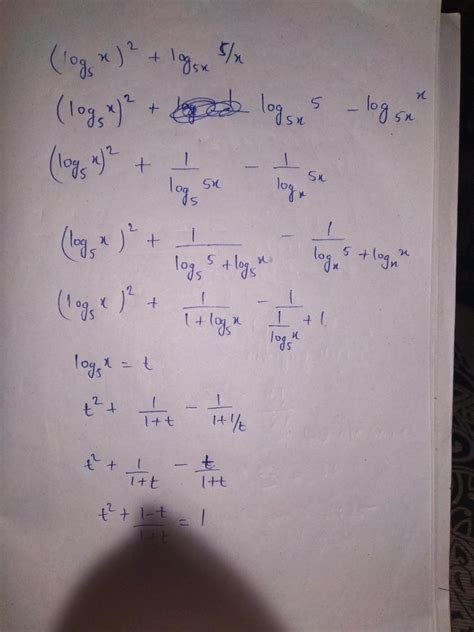 (log₅x)² + log₅ₓ 5/x
(log₅x)² + log₅ₓ 5 - log₅ₓ x
(log₅x)² + 1/(log₅ 5x) - 1/(logₓ 5x)
(log₅x)² + 1/(log₅5 + log₅x) - 1/(logₓ5 + logₓx)
(log₅x)² + 1/(1 + log₅x) - 1/(1/(log₅x) + 1)
log₅x = t
t² + 1/(1+t) - 1/(1+1/t)
t² + 1/(1+t) - t/(1+t)
t² + (1-t)/(1+t) = 1